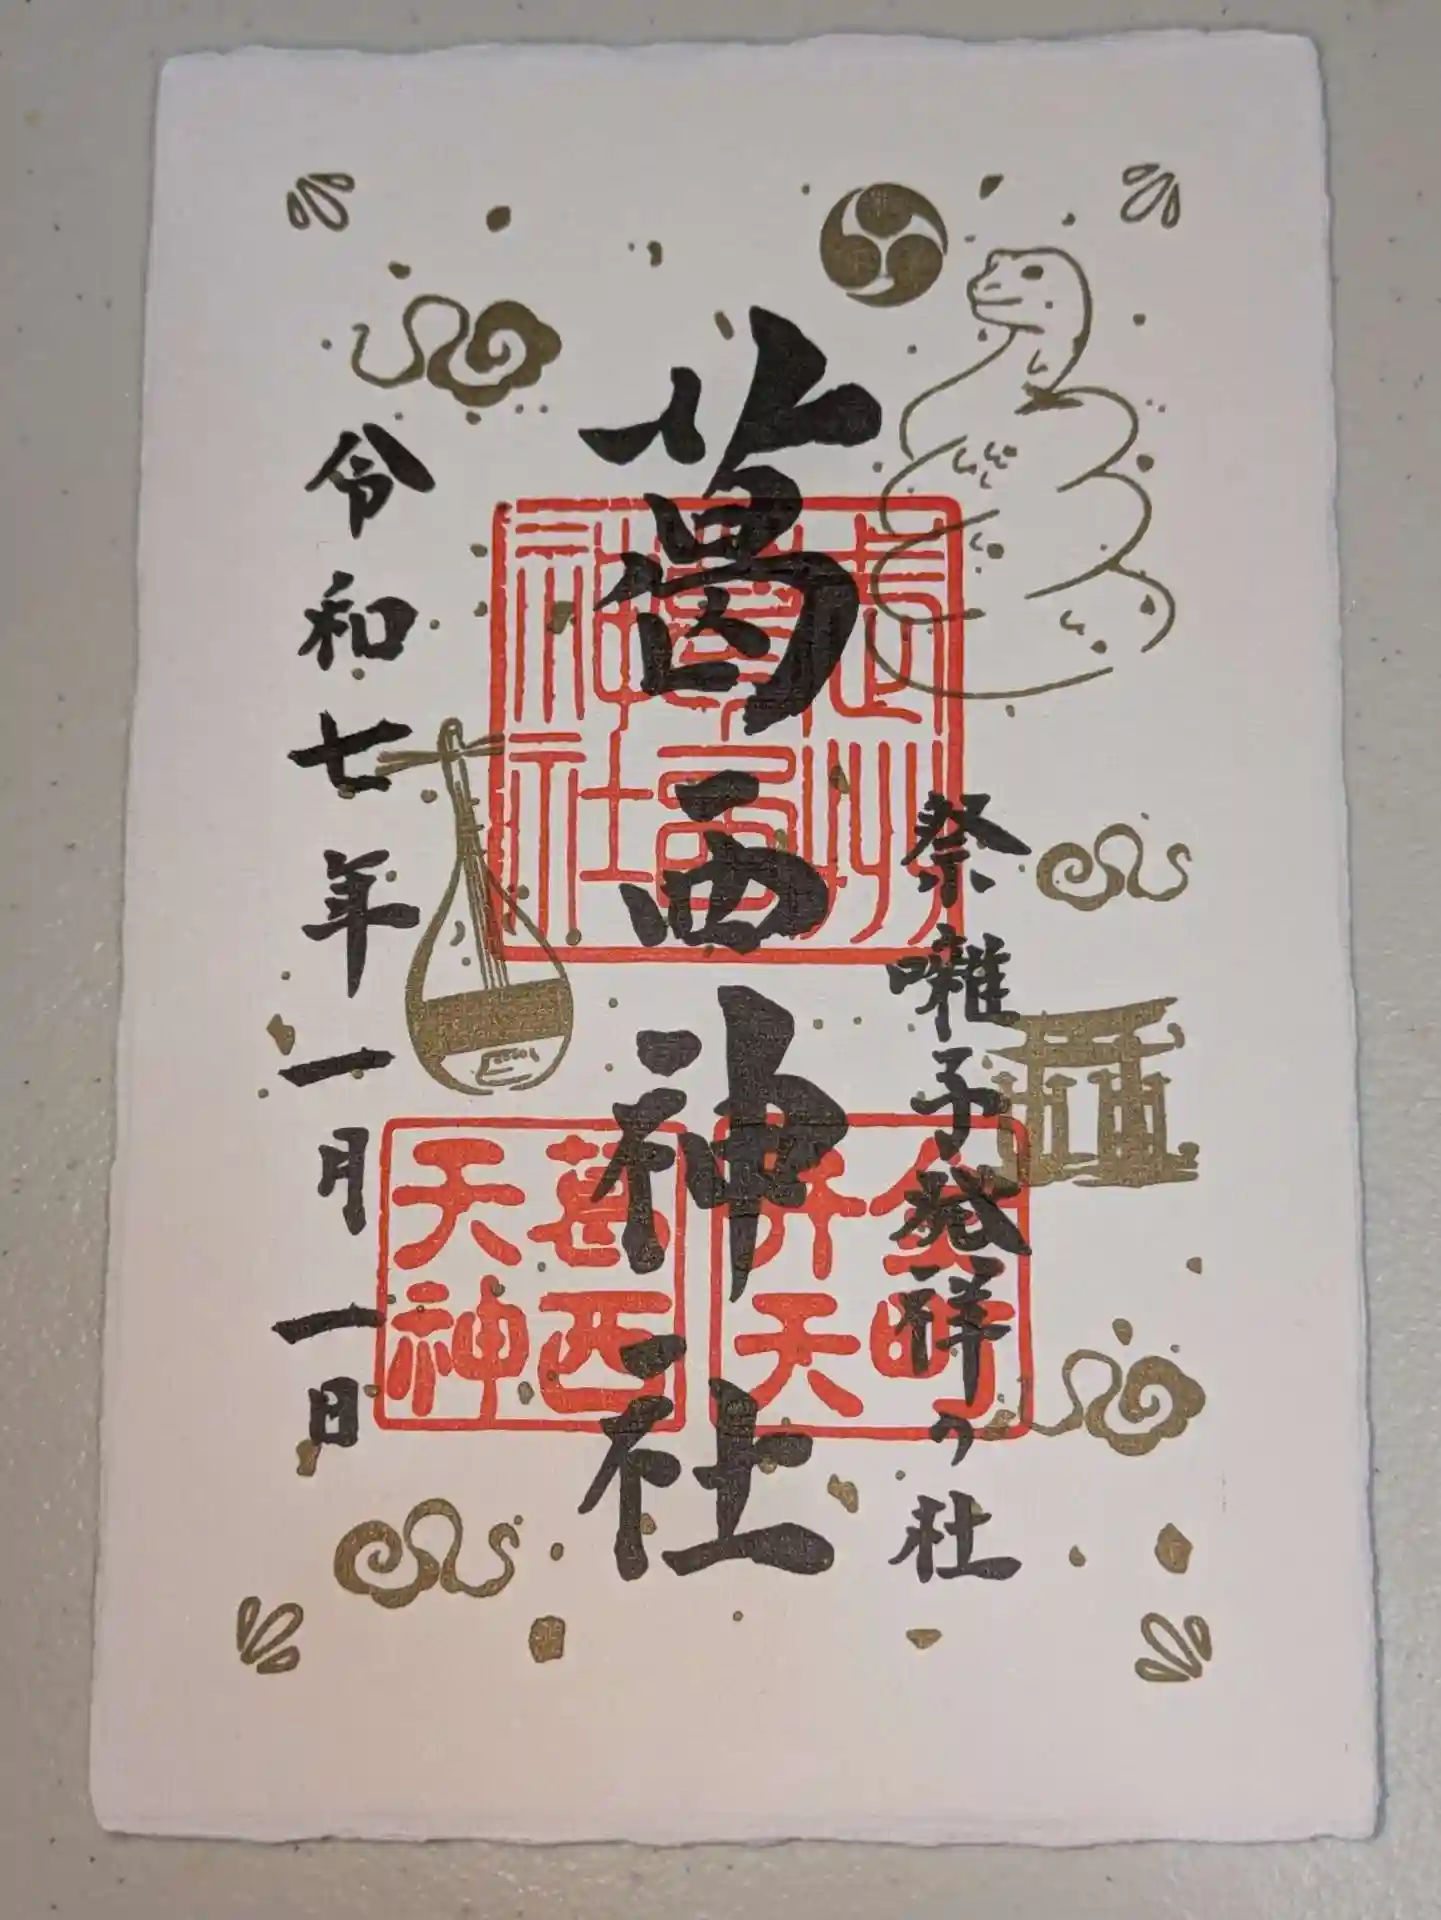 祭囃子発祥の社
葛西神社
令和七年一月一日
武州
葛西
神社
金町
弁天
葛西
天神